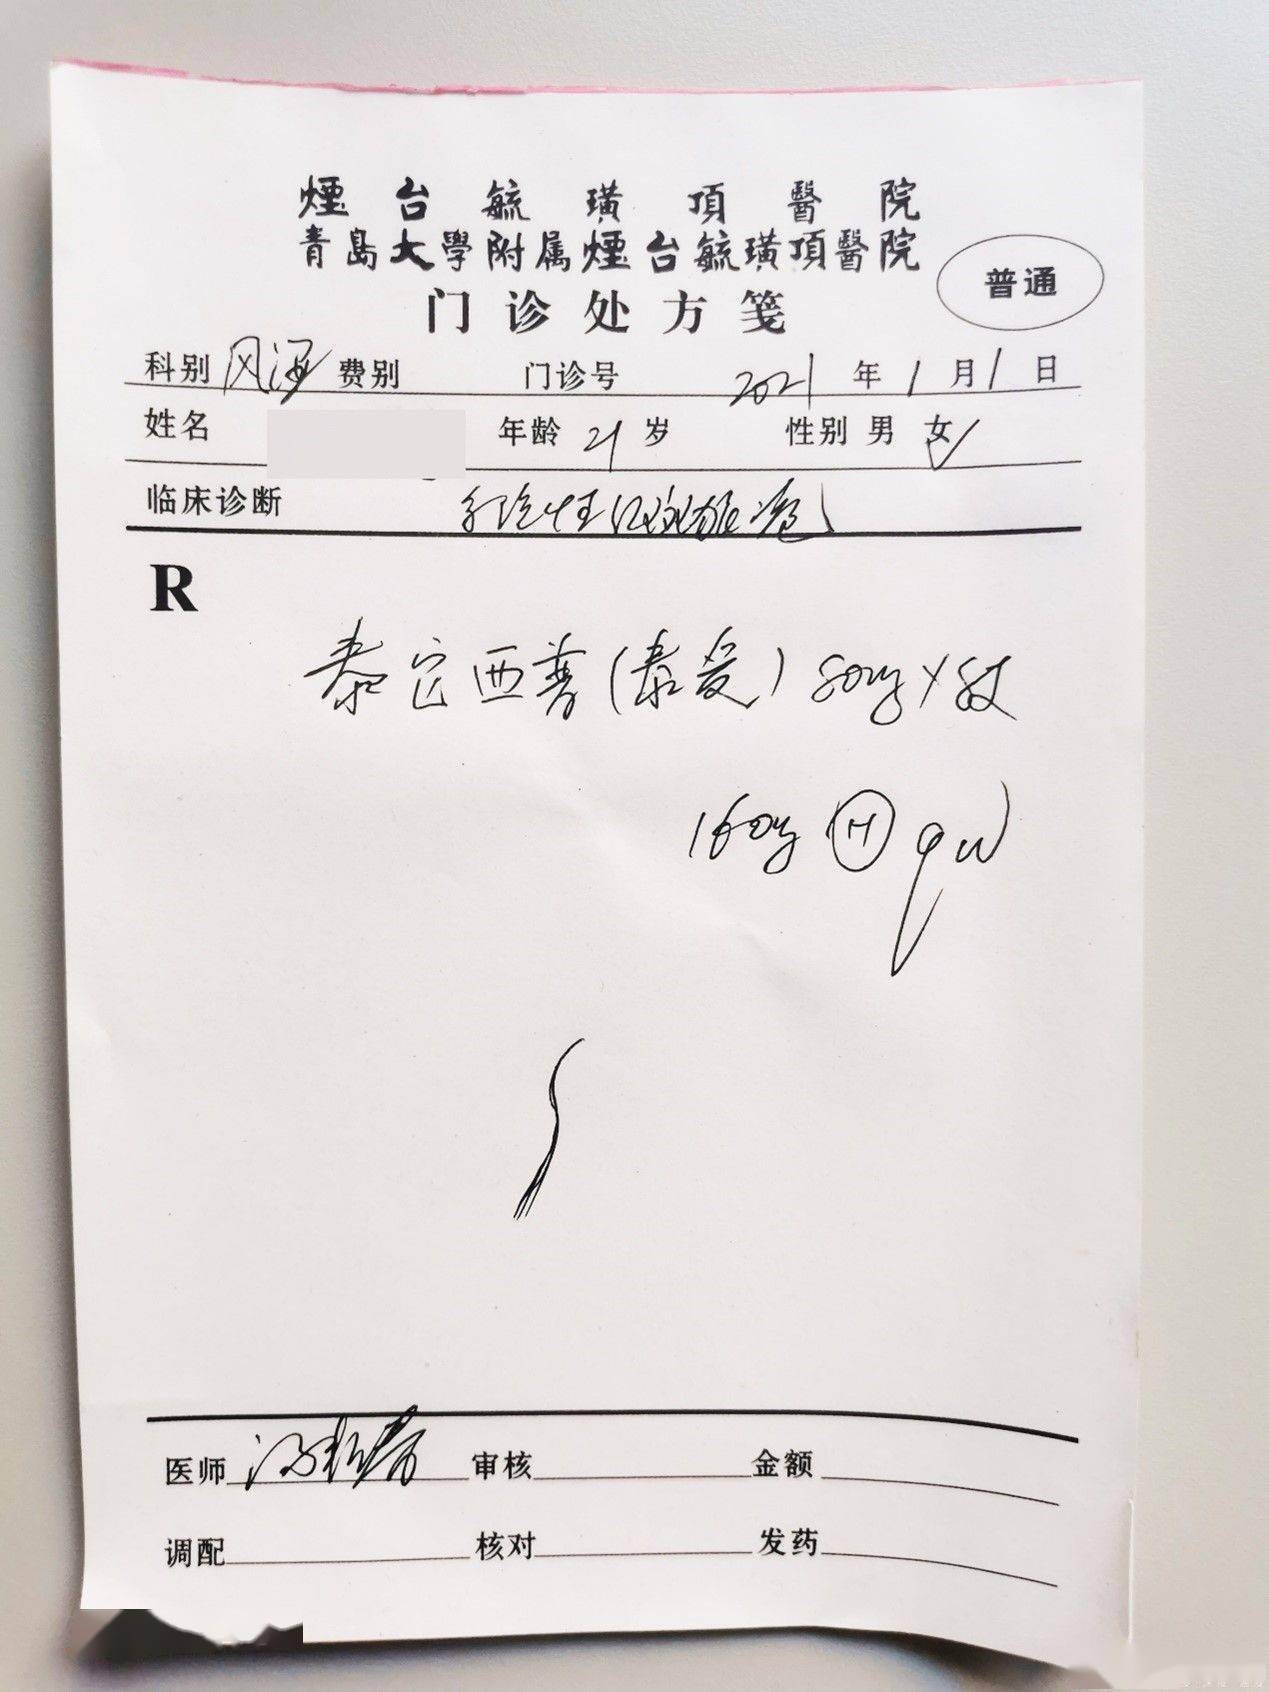 煙台毓璜頂醫院
青島大學附属煙台毓璜頂醫院
普通
门诊处方笺
科别 风湿 费别 门诊号 2021年1月1日
姓名 年龄 21岁 性别 男 女✓
临床诊断 系统性红斑狼疮
R
泰它西普(泰爱) 80mg×8支
160mg Ⓗ qw
医师 审核 金额
调配 核对 发药